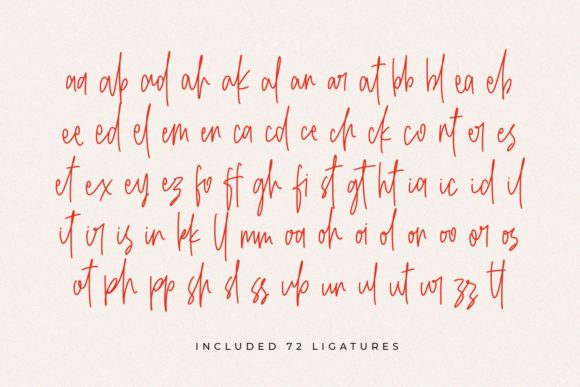 aa ab ad ah ak al an ar at bb bl ea eb
ee ed el em en ca cd ce ch ck co nt er es
et ex ey ez fo ff gh fi st gt ht ia ic id il
it ir is in kk ll mm oa oh oi ol on oo or os
ot ph pp sh sl ss ub un ul ut ur zz tt
INCLUDED 72 LIGATURES